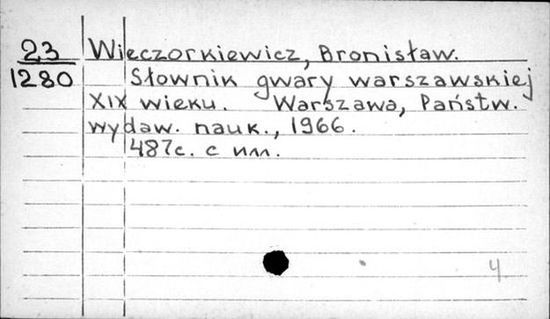 23 Wieczorkiewicz, Bronisław.
1280 Słownik gwary warszawskiej
XIX wieku. Warszawa, Państw.
wydaw. nauk., 1966.
487с. с илл.
4.